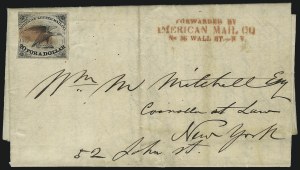 20 FOR A DOLLAR
FORWARDED BY
AMERICAN MAIL CO
No 56 WALL ST.—N Y.
Wm M Mitchell Esq
Counsellor at Law
New York
52 John St.